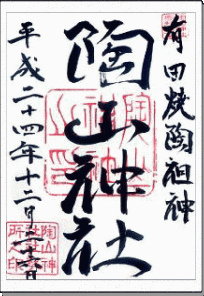 有田焼陶祖神
陶山神社
平成二十四年十二月二十六日
陶山神社社務所之印